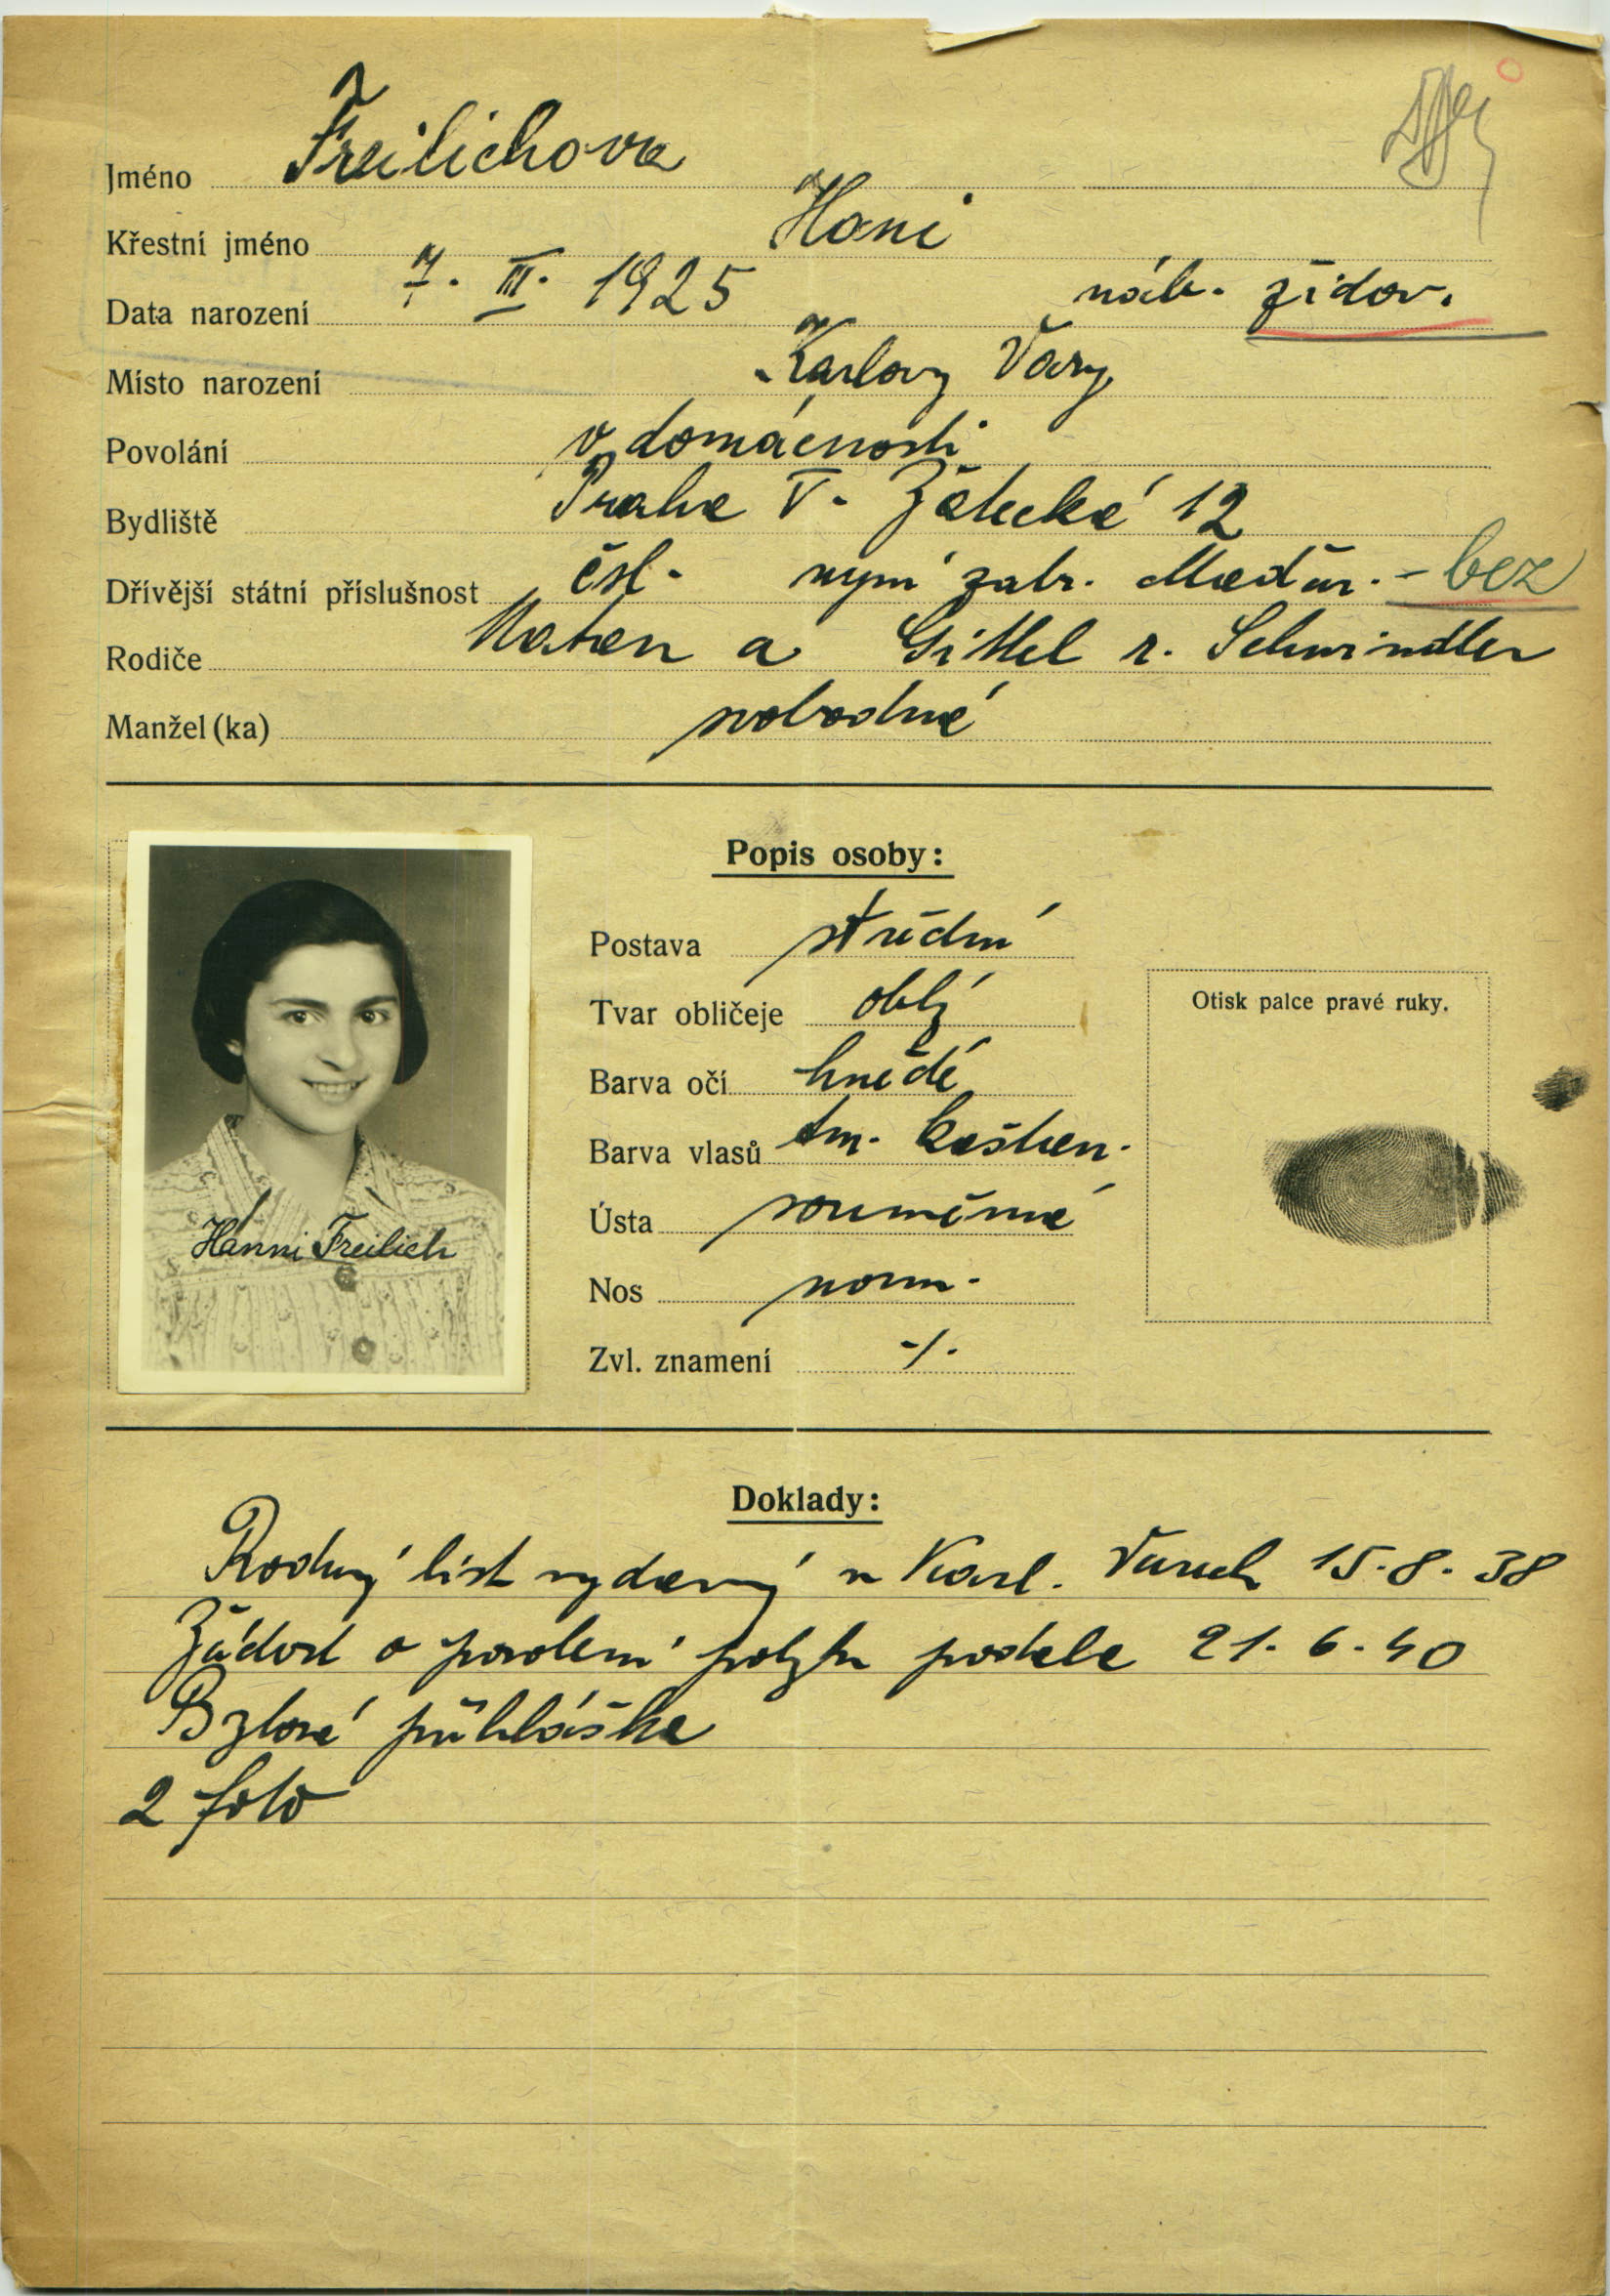 Jméno Freilichova
Křestní jméno Hani
Data narození 7. III. 1925 náb. židov.
Místo narození Karlovy Vary
Povolání v domácnosti
Bydliště Praha V. Žatecká 12
Dřívější státní příslušnost čsl. nyní zabr. Maďar. - bez
Rodiče Natan a Gittel r. Schwindler
Manžel(ka) svobodná
Popis osoby:
Postava střední
Tvar obličeje oblý
Barva očí hnědé
Barva vlasů tm. kaštan.
Ústa souměrné
Nos norm.
Zvl. znamení -/.
Otisk palce pravé ruky.
Hanni Freilich
Doklady:
Rodný list vydaný v Karl. Varech 15.8.38
Žádost o povolení pobytu podala 21.6.40
Bytová přihláška
2 foto